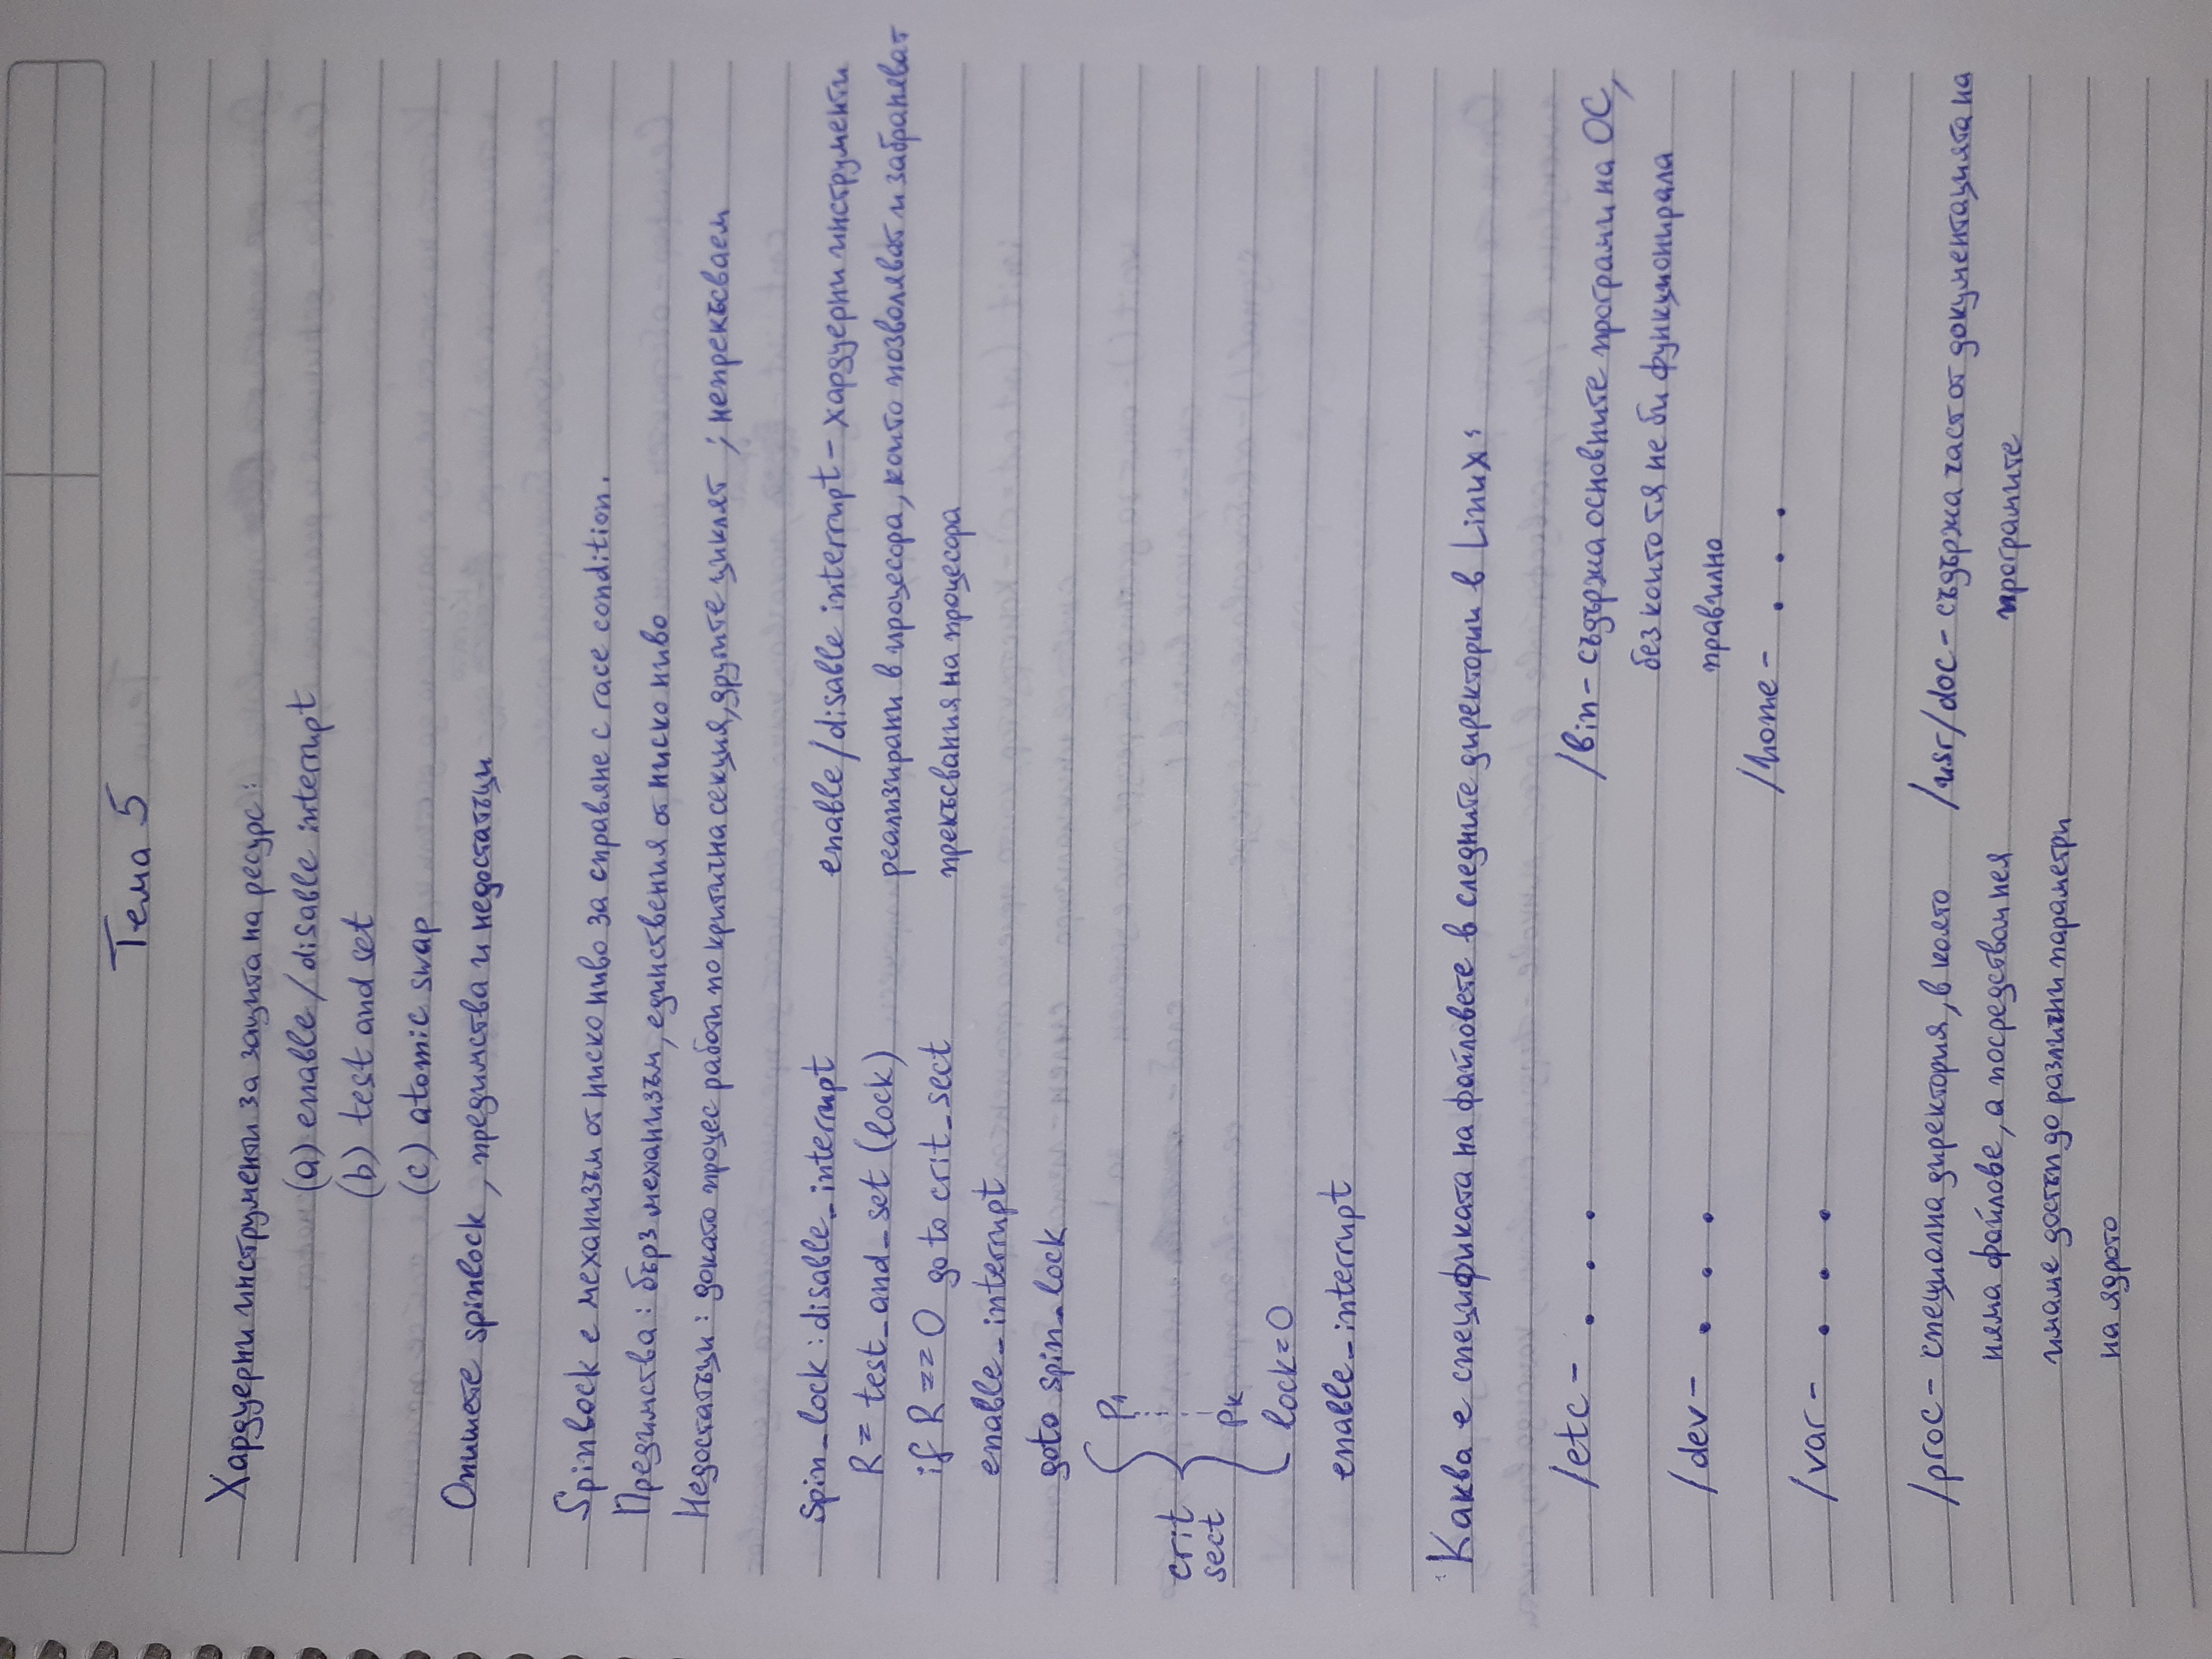 Тема 5
Хардуерни инструменти за защита на ресурс:
(a) enable/disable interrupt
(b) test and set
(c) atomic swap
Опишете spinlock, предимства и недостатъци
Spinlock е механизъм от ниско ниво за справяне с race condition.
Предимства: бърз механизъм, единствения от ниско ниво
Недостатъци: докато процес работи по критична секция, другите циклят ; непрекъсваем
spin_lock: disable_interrupt
R = test_and_set (lock)
if R == 0 go to crit_sect
enable_interrupt
goto spin_lock
crit sect
p1
pк
lock=0
enable_interrupt
enable/disable interrupt - хардуерни инструменти
реализирани в процесора, които позволяват и забраняват
прекъсвания на процесора
Каква е спецификата на файловете в следните директории в Linux:
/etc - . . .
/dev - . . .
/var - . . .
/proc - специална директория, в която
няма файлове, а посредством нея
имаме достъп до различни параметри
на ядрото
/bin - съдържа основните програми на ОС,
без които тя не би функционирала
правилно
/home - . . .
/usr/doc - съдържа част от документацията на
програмите